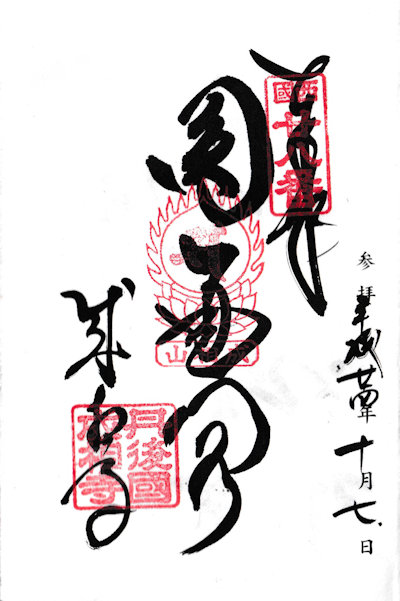 奉拝
西國
廿八番
参拝平成廿四年十月七日
圓通閣
成相山
成相寺
丹後國
成相寺